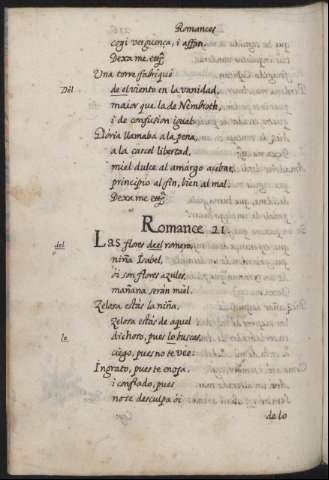 Romances
cogi verguença, i affan.
Dexa me etc.
Una torre fabriquè
Dèl
de el viento en la vanidad,
maior que la de Nembroth,
i de confusion igual.
Gloria llamaba a la pena,
a la carcel libertad,
miel dulce al amargo acibar,
principio al fin, bien al mal.
Dexa me etc.
Romance 21.
del
Las flores de el romero,
niña Isabel,
oi son flores azules,
mañana seràn miel.
Zelosa estàs la niña,
Zelosa estàs de aquel
lo
dichoso, pues lo buscas,
ciego, pues no te vee.
Ingrato, pues te enoja,
i confiado, pues
no se desculpa oi
de lo